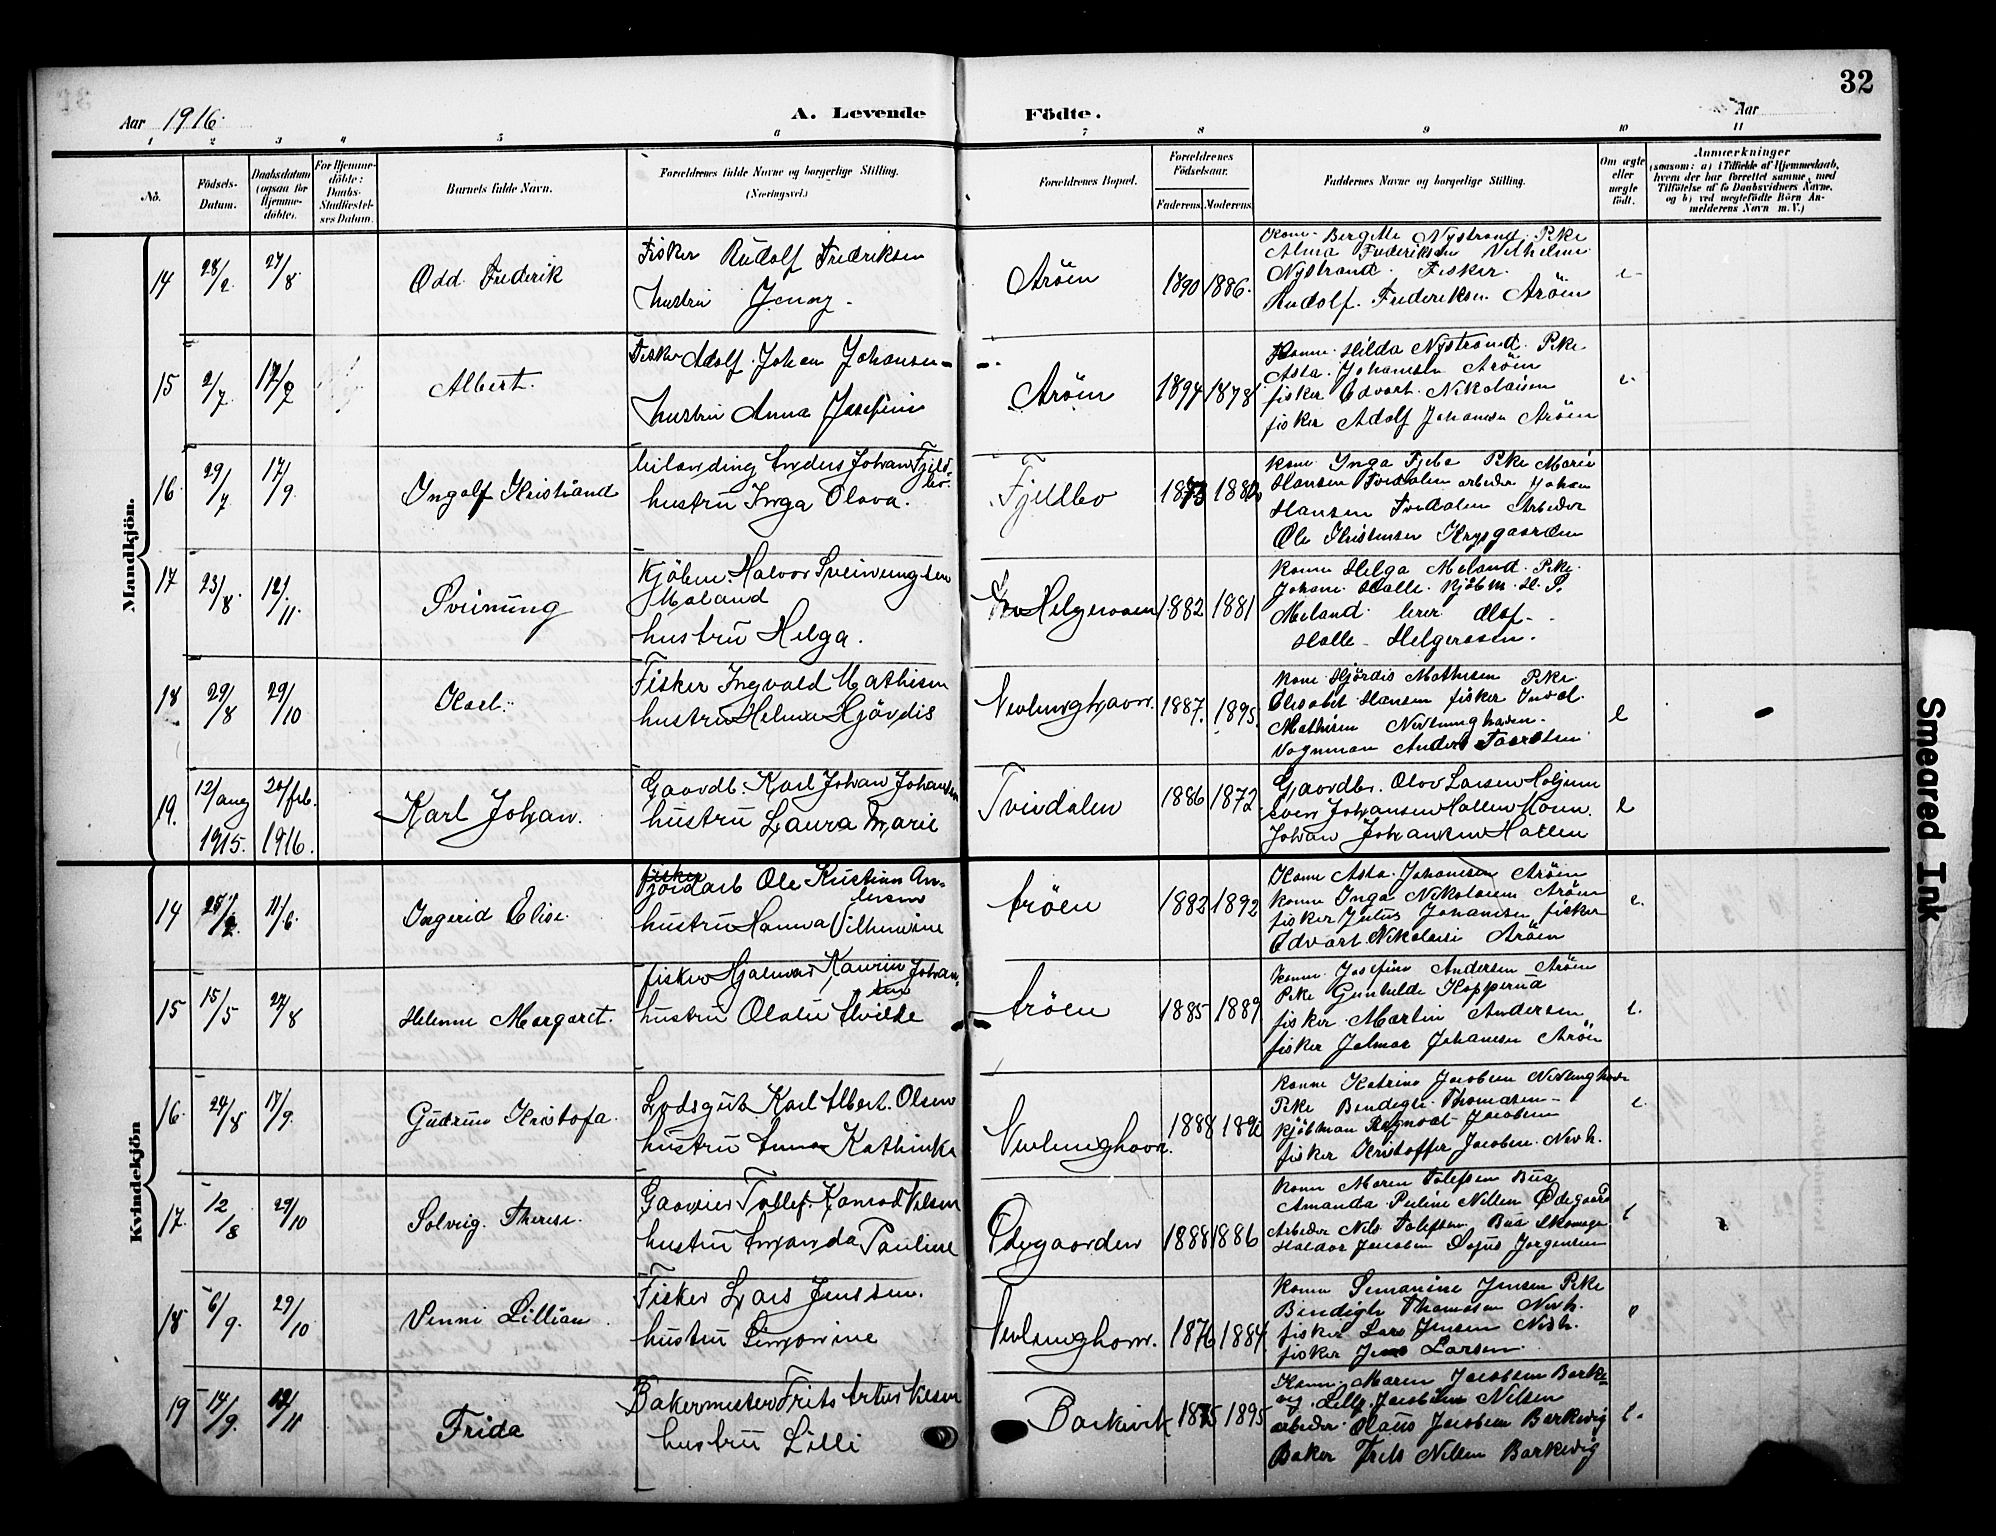 32
Aar 1916.
A. Levende Födte.
Aar
1 2 3 4 5 6 7 8 9 10 11
No.
Födsels-Datum.
Daabsdatum (ogsaa for Hjemme-döbte).
For Hjemme-döbte: Daabs-Stadfæstel-ses Datum.
Barnets fulde Navn.
Forældrenes fulde Navne og borgerlige Stilling.
(Næringsvei.)
Forældrenes Bopæl.
Forældrenes Födselsaar.
Faderens. Moderens.
Faddernes Navne og borgerlige Stilling.
Om ægte eller uægte födt.
Anmærkninger
(saasom: a) i Tilfælde af Hjemmedaab, hvem der har forrettet samme, med Tilföielse af to Daabsvidners Navne, og b) ved uægtefödte Börn An-melderens Navn m. V.)
Mandkjön.
14 28/2 27/8 Odd Frederik
Fisker Rudolf Fredriksen
hustru Jenny.
Aröen 1890 1886.
Kone Bergitte Nystrand Pike
Alma Frederiksen Vilhelm
Nystrand. Fisker.
Rudolf. Frederiksen Aröen
e
15 2/7 17/9 Albert.
Fisker Adolf Johan Johansen
hustru Anna Josefine
Aröen 1894 1878
Kone Hilda Nystrand. Pike
Asta. Johansen Aröen
fisker Edvart Nikolaisen
fisker Adolf Johansen Aröen
e
16 29/7 17/9 Ingolf Kristiand
leilending Anders Johan Fjeld-
bo
hustru Inga Olava.
Fjeldbo 1873 1880
Kone Inga Fjelbo Pike Marie
Hansen Tvedalen arbeder Johan
Hansen Tvedalen Arbeder
Ole Kristensen Krysgaarden
17 23/8 12/11 Sveinung
Kjöbm. Halvor Sveinungsen
Moland
hustru Helga.
Helgeroaen 1882 1881
Kone Helga Meland. Pike
Johane Halle Kjöbm. H. S.
Meland lerer Olaf
Halle - Helgeroen.
18 29/8 29/10 Karl.
Fisker Ingvald Mathisen
hustru Helma Hjördis
Nevlunghavn. 1887. 1895.
Kone Hjördis Mathisen Pike
Elisabet Hansen fisker Invol
Mathisen Nevlunghaven.
Vognman Anders Taaretsen
e
19. 12/aug 1915. 20/feb. 1916. Karl Johan.
Gaardb. Karl Johan Johansen
hustru Laura Marie
Tvedalen 1886 1872
Gaardbr. Olav Larsen Holjem
Sven Johansen Hallen Kone
Johan Johansen Hallen
e
Kvindekjön
14 11/6 Ingerid Elise.
fisker
Fjordarb Ole Kristian An-
dersen
hustru Hanna Vilhelmine
Aröen 1882 1892
Kone Asta Johansen Aröen
kone Inga Nikolaisen Aröen
fisker Julius Johansen fisker
Edvart Nikolaisi Aröen
e.
15 15/5 27/8 Helenne Margaret.
fisker Hjalmar Kaurin Johan-
sen
hustru Olalie Alvilde
Aröen 1885 1889
Kone Josefine Andersen Aröen
Pike Gunhilde Kopperud
fisker Martin Andersen
fisker Jalmar Johansen Aröen
e.
16 24/8 17/9. Gudrun Kristofa.
Lodsgut Karl Albert. Olsen
hustru Anna Kathinka
Nevlunghavn. 1888
Kone Katrine Jacobsen Nevlunghavn
Pike Bendigte Thomasen
Kjöbman Ragnvat Jacobsen
fisker Kristoffer Jacobsen Nevh.
e.
17. 12/8 29/10 Solveig. Therese.
Gaardeier Tollef. Konrad Nilsen
hustru Amanda Pauline
Ödegaarden 1888 1886
Kone Maren Tolefsen Bua
Amanda Peline Nilsen Ödegaard
Arbeder Nils Tolefsen Bua Skomager
Haldor Jacobsen Sofus Jorgensen
18 6/9. 29/10 Venni Lillian.
Fisker Lars Jenssen.
hustru Simonine
Nevlunghavn. 1876 1884.
Kone Semanine Jensen Pike
Bendigte Thomasen Nevh.
fisker Lars Jensen Nevh.
fisker Jens Larsen.
19 14/9. Frida
Bakermester Frits Artur Nilsen
hustru Lilli
Barkevik 1895
Kone Maren Jacobsen Barke-
vig. Lilly Jacobine Nilsen
arbeder Olaus Jacobsen Barkevig
Baker Frits Nilsen Barkevig
e.
Smeared Ink